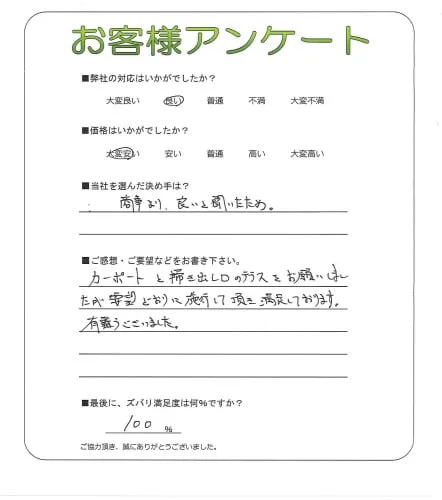 お客様アンケート
■弊社の対応はいかがでしたか?
大変良い 良い 普通 不満 大変不満
■価格はいかがでしたか?
大変安い 安い 普通 高い 大変高い
■当社を選んだ決め手は?
商事より、良いと聞いたため。
■ご感想・ご要望などをお書き下さい。
カーポートと掃き出し口のテラスをお願いしまし
たが要望どおりに施行して頂き満足しております。
有難うございました。
■最後に、ズバリ満足度は何%ですか?
100 %
ご協力頂き、誠にありがとうございました。